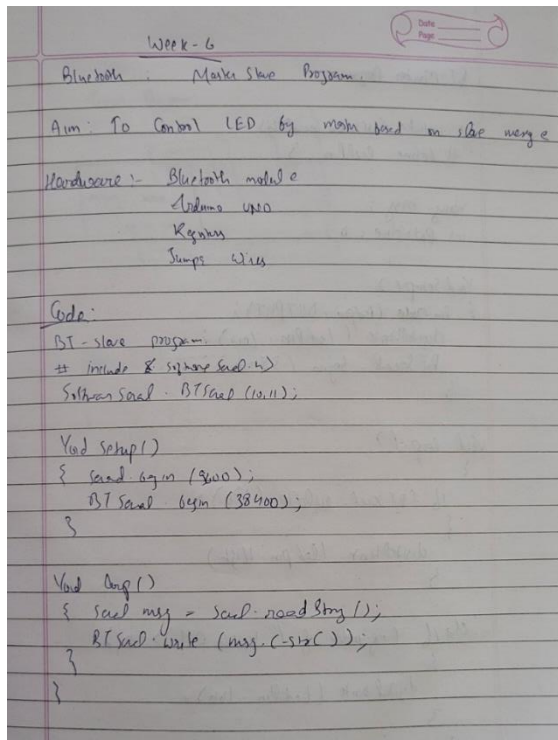 Date
Page
Week - 6
Bluetooth : Master Slave Program.
Aim: To Control LED by master based on slave
Hardware :- Bluetooth module
Arduino UNO
Jumps Wires
Code:
BT - slave program.
# include
BTSerial (10,11);
Void setup()
{ Serial. begin (9600);
BTSerial. begin (38400);
}
Void loop()
{ msg = Serial. readString();
BTSerial. write (msg.
}
}